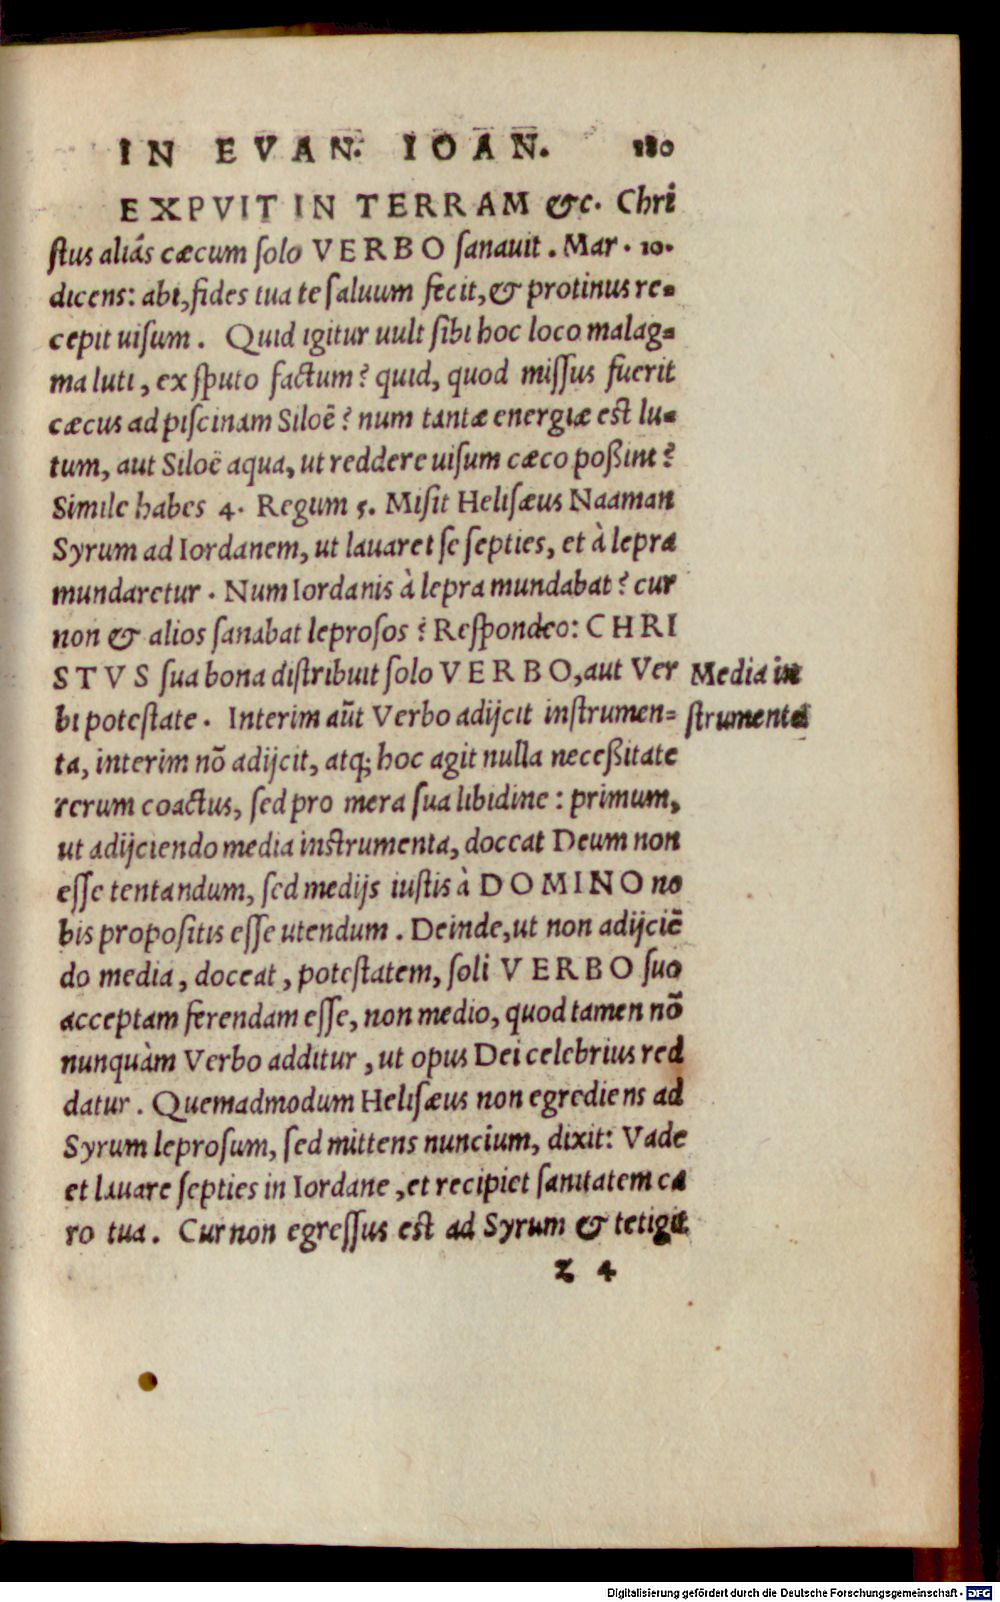 IN EVAN. IOAN. 180
EXPVIT IN TERRAM &c. Chri
stus aliás cæcum solo VERBO sanauit. Mar. 10.
dicens: abi, fides tua te saluum fecit, & protinus re=
cepit uisum. Quid igitur uult sibi hoc loco malag=
ma luti, ex sputo factum? quid, quod missus fuerit
cæcus ad piscinam Siloë? num tantæ energiæ est lu=
tum, aut Siloë aqua, ut reddere uisum cæco poßint?
Simile habes 4. Regum 5. Misit Helisæus Naaman
Syrum ad Iordanem, ut lauaret se septies, et à lepra
mundaretur. Num Iordanis à lepra mundabat? cur
non & alios sanabat leprosos? Respondeo: CHRI
STVS sua bona distribuit solo VERBO, aut Ver
Media in
bi potestate. Interim aūt Verbo adijcit instrumen=
strumenta
ta, interim nō adijcit, atq; hoc agit nulla neceßitate
rerum coactus, sed pro mera sua libidine: primum,
ut adijciendo media instrumenta, doceat Deum non
esse tentandum, sed medijs iustis à DOMINO no
bis propositis esse utendum. Deinde, ut non adijciē
do media, doceat, potestatem, soli VERBO suo
acceptam ferendam esse, non medio, quod tamen nō
nunquàm Verbo additur, ut opus Dei celebrius red
datur. Quemadmodum Helisæus non egrediens ad
Syrum leprosum, sed mittens nuncium, dixit: Vade
et lauare septies in Iordane, et recipiet sanitatem ca
ro tua. Cur non egressus est ad Syrum & tetigit
Z 4
Digitalisierung gefördert durch die Deutsche Forschungsgemeinschaft - DFG